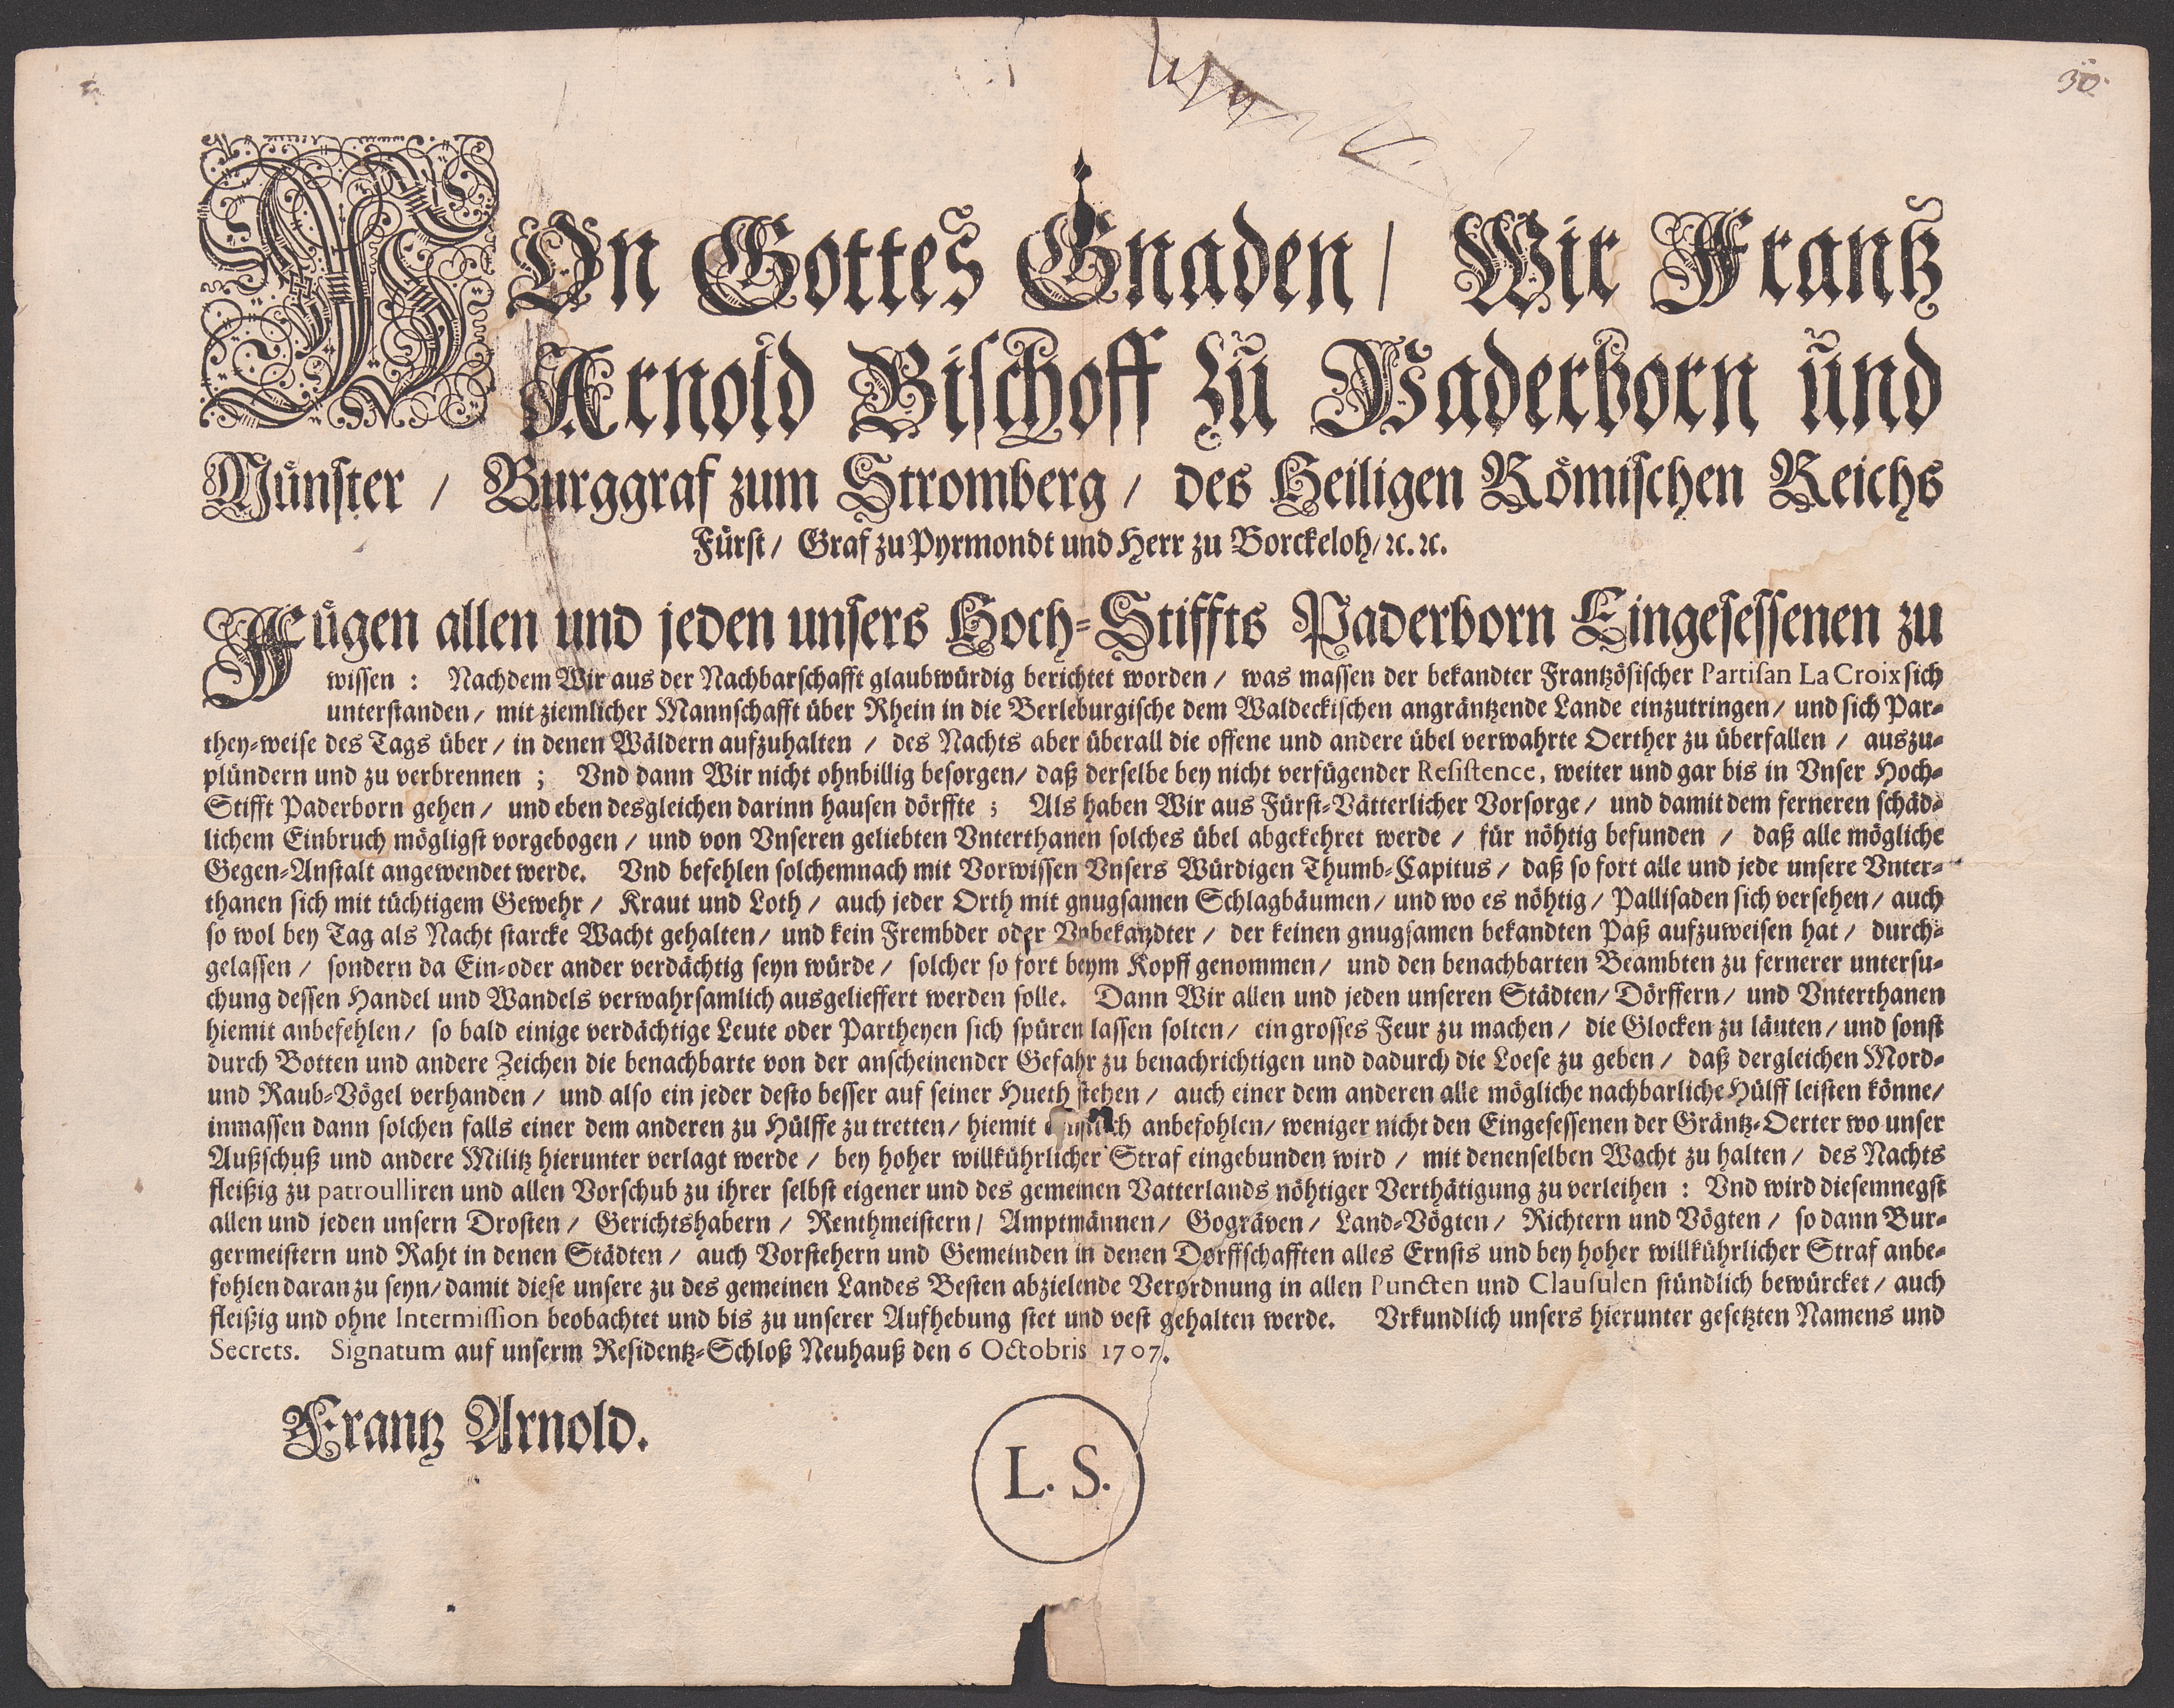 30.
VOn Gottes Gnaden / Wir Frantz
Arnold Bischoff zu Paderborn und
Münster / Burggraf zum Stromberg / des Heiligen Römischen Reichs
Fürst / Graf zu Pyrmondt und Herr zu Borckeloh / ꝛc. ꝛc.
Fügen allen und jeden unsers Hoch-Stiffts Paderborn Eingesessenen zu
wissen : Nachdem Wir aus der Nachbarschafft glaubwürdig berichtet worden / was massen der bekandter Frantzösischer Partisan La Croix sich
unterstanden / mit ziemlicher Mannschafft über Rhein in die Berleburgische dem Waldeckischen angräntzende Lande einzutringen / und sich Par-
they-weise des Tags über / in denen Wäldern aufzuhalten / des Nachts aber überall die offene und andere übel verwahrte Oerther zu überfallen / auszu-
plündern und zu verbrennen ; Vnd dann Wir nicht ohnbillig besorgen / daß derselbe bey nicht verfügender Resistence, weiter und gar bis in Vnser Hoch-
Stifft Paderborn gehen / und eben desgleichen darinn hausen dörffte ; Als haben Wir aus Fürst-Vätterlicher Vorsorge / und damit dem ferneren schäd-
lichem Einbruch mögligst vorgebogen / und von Vnseren geliebten Vnterthanen solches übel abgekehret werde / für nöhtig befunden / daß alle mögliche
Gegen-Anstalt angewendet werde. Vnd befehlen solchemnach mit Vorwissen Vnsers Würdigen Thumb-Capitus / daß so fort alle und jede unsere Vnter-
thanen sich mit tüchtigem Gewehr / Kraut und Loth / auch jeder Orth mit gnugsamen Schlagbäumen / und wo es nöhtig / Pallisaden sich versehen / auch
so wol bey Tag als Nacht starcke Wacht gehalten / und kein Frembder oder Vnbekandter / der keinen gnugsamen bekandten Paß aufzuweisen hat / durch-
gelassen / sondern da Ein-oder ander verdächtig seyn würde / solcher so fort beym Kopff genommen / und den benachbarten Beambten zu fernerer untersu-
chung dessen Handel und Wandels verwahrsamlich ausgelieffert werden solle. Dann Wir allen und jeden unseren Städten / Dörffern / und Vnterthanen
hiemit anbefehlen / so bald einige verdächtige Leute oder Partheyen sich spüren lassen solten / ein grosses Feur zu machen / die Glocken zu läuten / und sonst
durch Botten und andere Zeichen die benachbarte von der anscheinender Gefahr zu benachrichtigen und dadurch die Loese zu geben / daß dergleichen Mord-
und Raub-Vögel verhanden / und also ein jeder desto besser auf seiner Hueth stehen / auch einer dem anderen alle mögliche nachbarliche Hülff leisten könne /
inmassen dann solchen falls einer dem anderen zu Hülffe zu tretten / hiemit anbefohlen / weniger nicht den Eingesessenen der Gräntz-Oerter wo unser
Außschuß und andere Militz hierunter verlagt werde / bey hoher willkührlicher Straf eingebunden wird / mit denenselben Wacht zu halten / des Nachts
fleißig zu patroulliren und allen Vorschub zu ihrer selbst eigener und des gemeinen Vatterlands nöhtiger Verthätigung zu verleihen : Vnd wird diesemnegst
allen und jeden unsern Drosten / Gerichtshabern / Renthmeistern / Amptmännen / Gogräven / Land-Vögten / Richtern und Vögten / so dann Bur-
germeistern und Raht in denen Städten / auch Vorstehern und Gemeinden in denen Dorffschafften alles Ernsts und bey hoher willkührlicher Straf anbe-
fohlen daran zu seyn / damit diese unsere zu des gemeinen Landes Besten abzielende Verordnung in allen Puncten und Clausulen stündlich bewürcket / auch
fleißig und ohne Intermission beobachtet und bis zu unserer Aufhebung stet und vest gehalten werde. Vrkundlich unsers hierunter gesetzten Namens und
Secrets. Signatum auf unserm Residentz-Schloß Neuhauß den 6 Octobris 1707.
Frantz Arnold.
L. S.